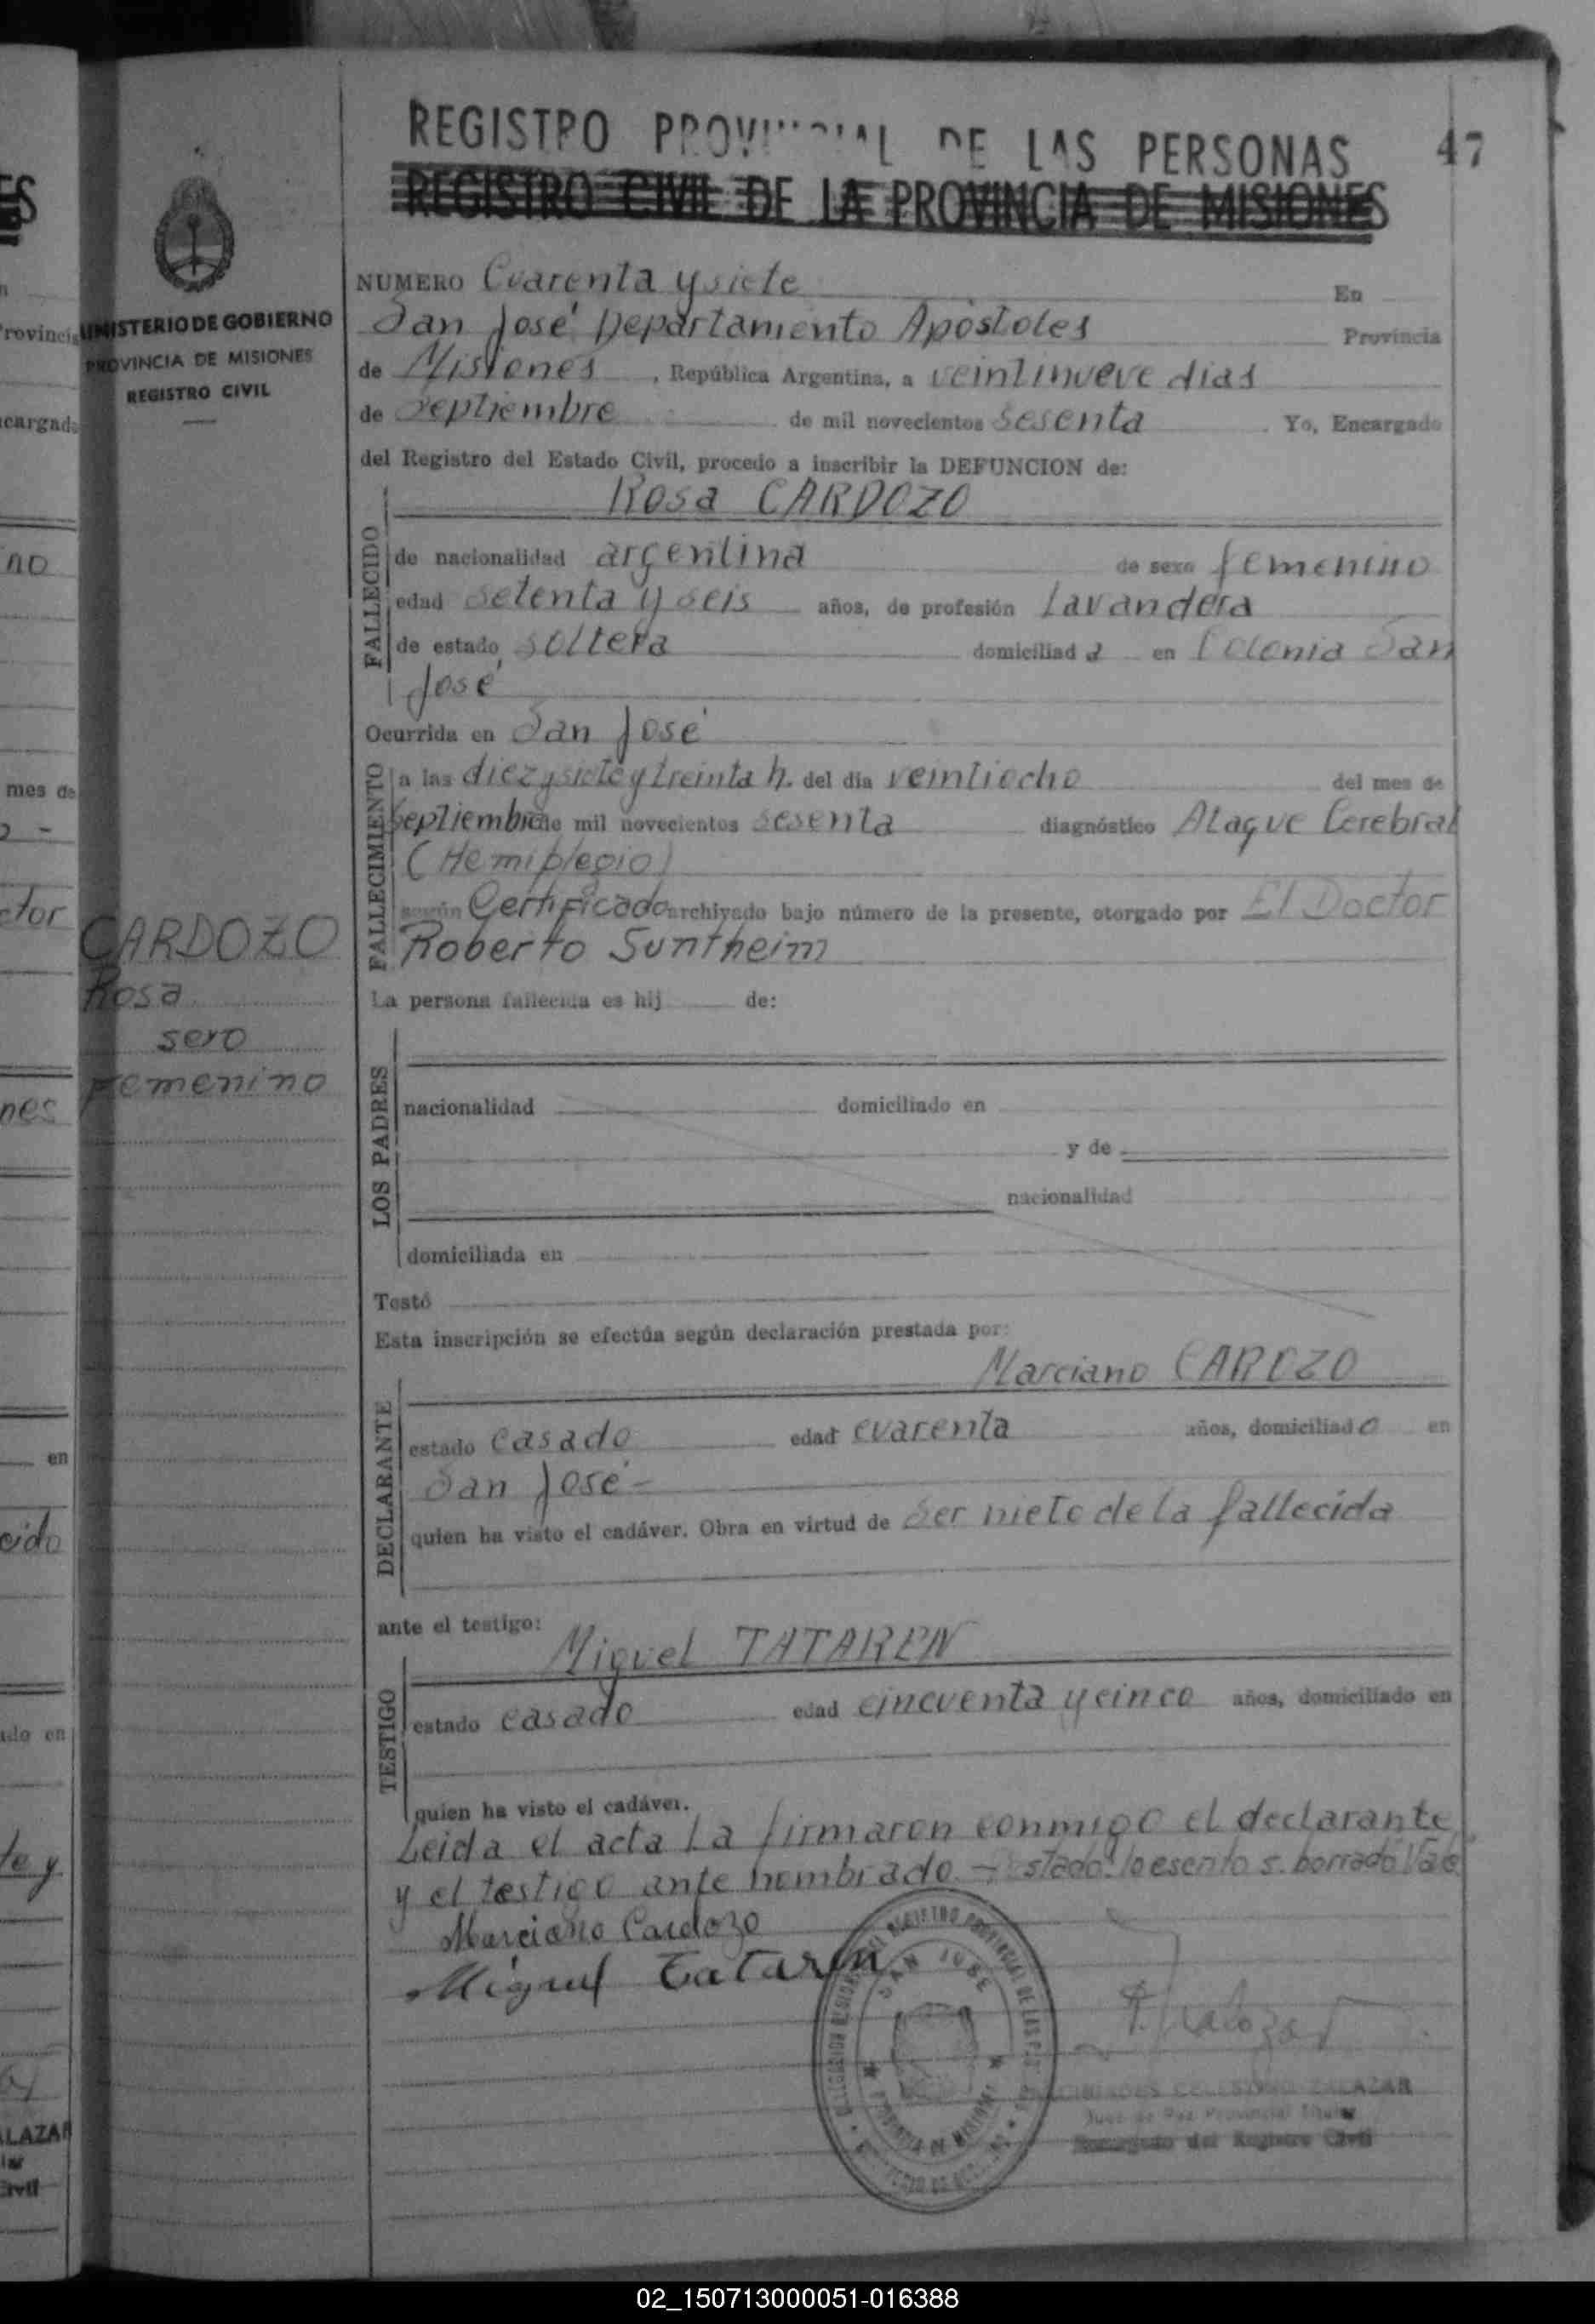 REGISTRO PROVINCIAL DE LAS PERSONAS 47
REGISTRO CIVIL DE LA PROVINCIA DE MISIONES
MINISTERIO DE GOBIERNO
PROVINCIA DE MISIONES
REGISTRO CIVIL
CARDOZO
Rosa
sexo
Femenino
NUMERO Cuarenta y siete En
San José Departamento Apóstoles Provincia
de Misiones, República Argentina, a veintinueve dias
de Septiembre de mil novecientos sesenta. Yo, Encargado
del Registro del Estado Civil, procedo a inscribir la DEFUNCION de:
Rosa CARDOZO
FALLECIDO
de nacionalidad argentina de sexo femenino
edad setenta y seis años, de profesión Lavandera
de estado soltera domiciliad a en Colonia San
José
Ocurrida en San José
FALLECIMIENTO
a las diez y siete y treinta h. del día veintiocho del mes de
septiembre de mil novecientos sesenta diagnóstico Ataque Cerebral
(Hemiplegio)
según Certificado archivado bajo número de la presente, otorgado por El Doctor
Roberto Suntheim
La persona fallecida es hij de:
LOS PADRES
nacionalidad domiciliado en
y de
nacionalidad
domiciliada en
Testó
Esta inscripción se efectúa según declaración prestada por:
Marciano CAROZO
DECLARANTE
estado casado edad cuarenta años, domiciliado en
San José -
quien ha visto el cadáver. Obra en virtud de Ser nieto de la fallecida
ante el testigo:
Miguel TATAREN
TESTIGO
estado casado edad cincuenta y cinco años, domiciliado en
quien ha visto el cadáver.
Leida el acta La firmaron conmigo el declarante
y el testigo ante nombrado. - Estado: lo escrito s. borrado Vale
Marciano Cardozo
Miguel Tataren
SAN JOSE
CELESTINO ZALAZAR
Juez de Paz Provincial Titular
Encargado del Registro Civil
02_150713000051-016388